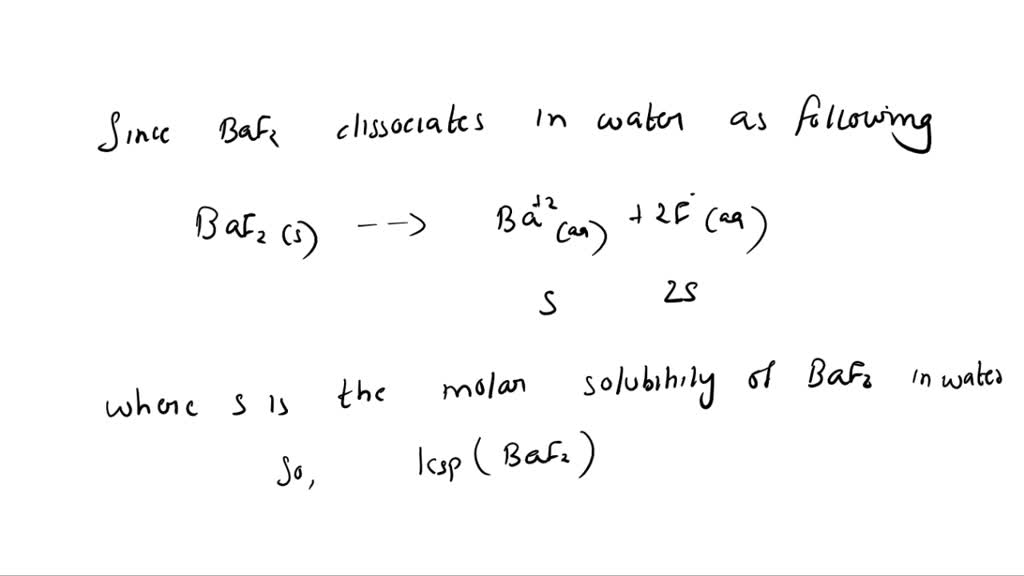 Since BaF₂ dissociates in water as following
BaF₂ (s) --> Ba⁺² (aq) + 2F⁻ (aq)
S 2S
where s is the molar solubility of BaF₂ in water
So, Ksp ( BaF₂ )